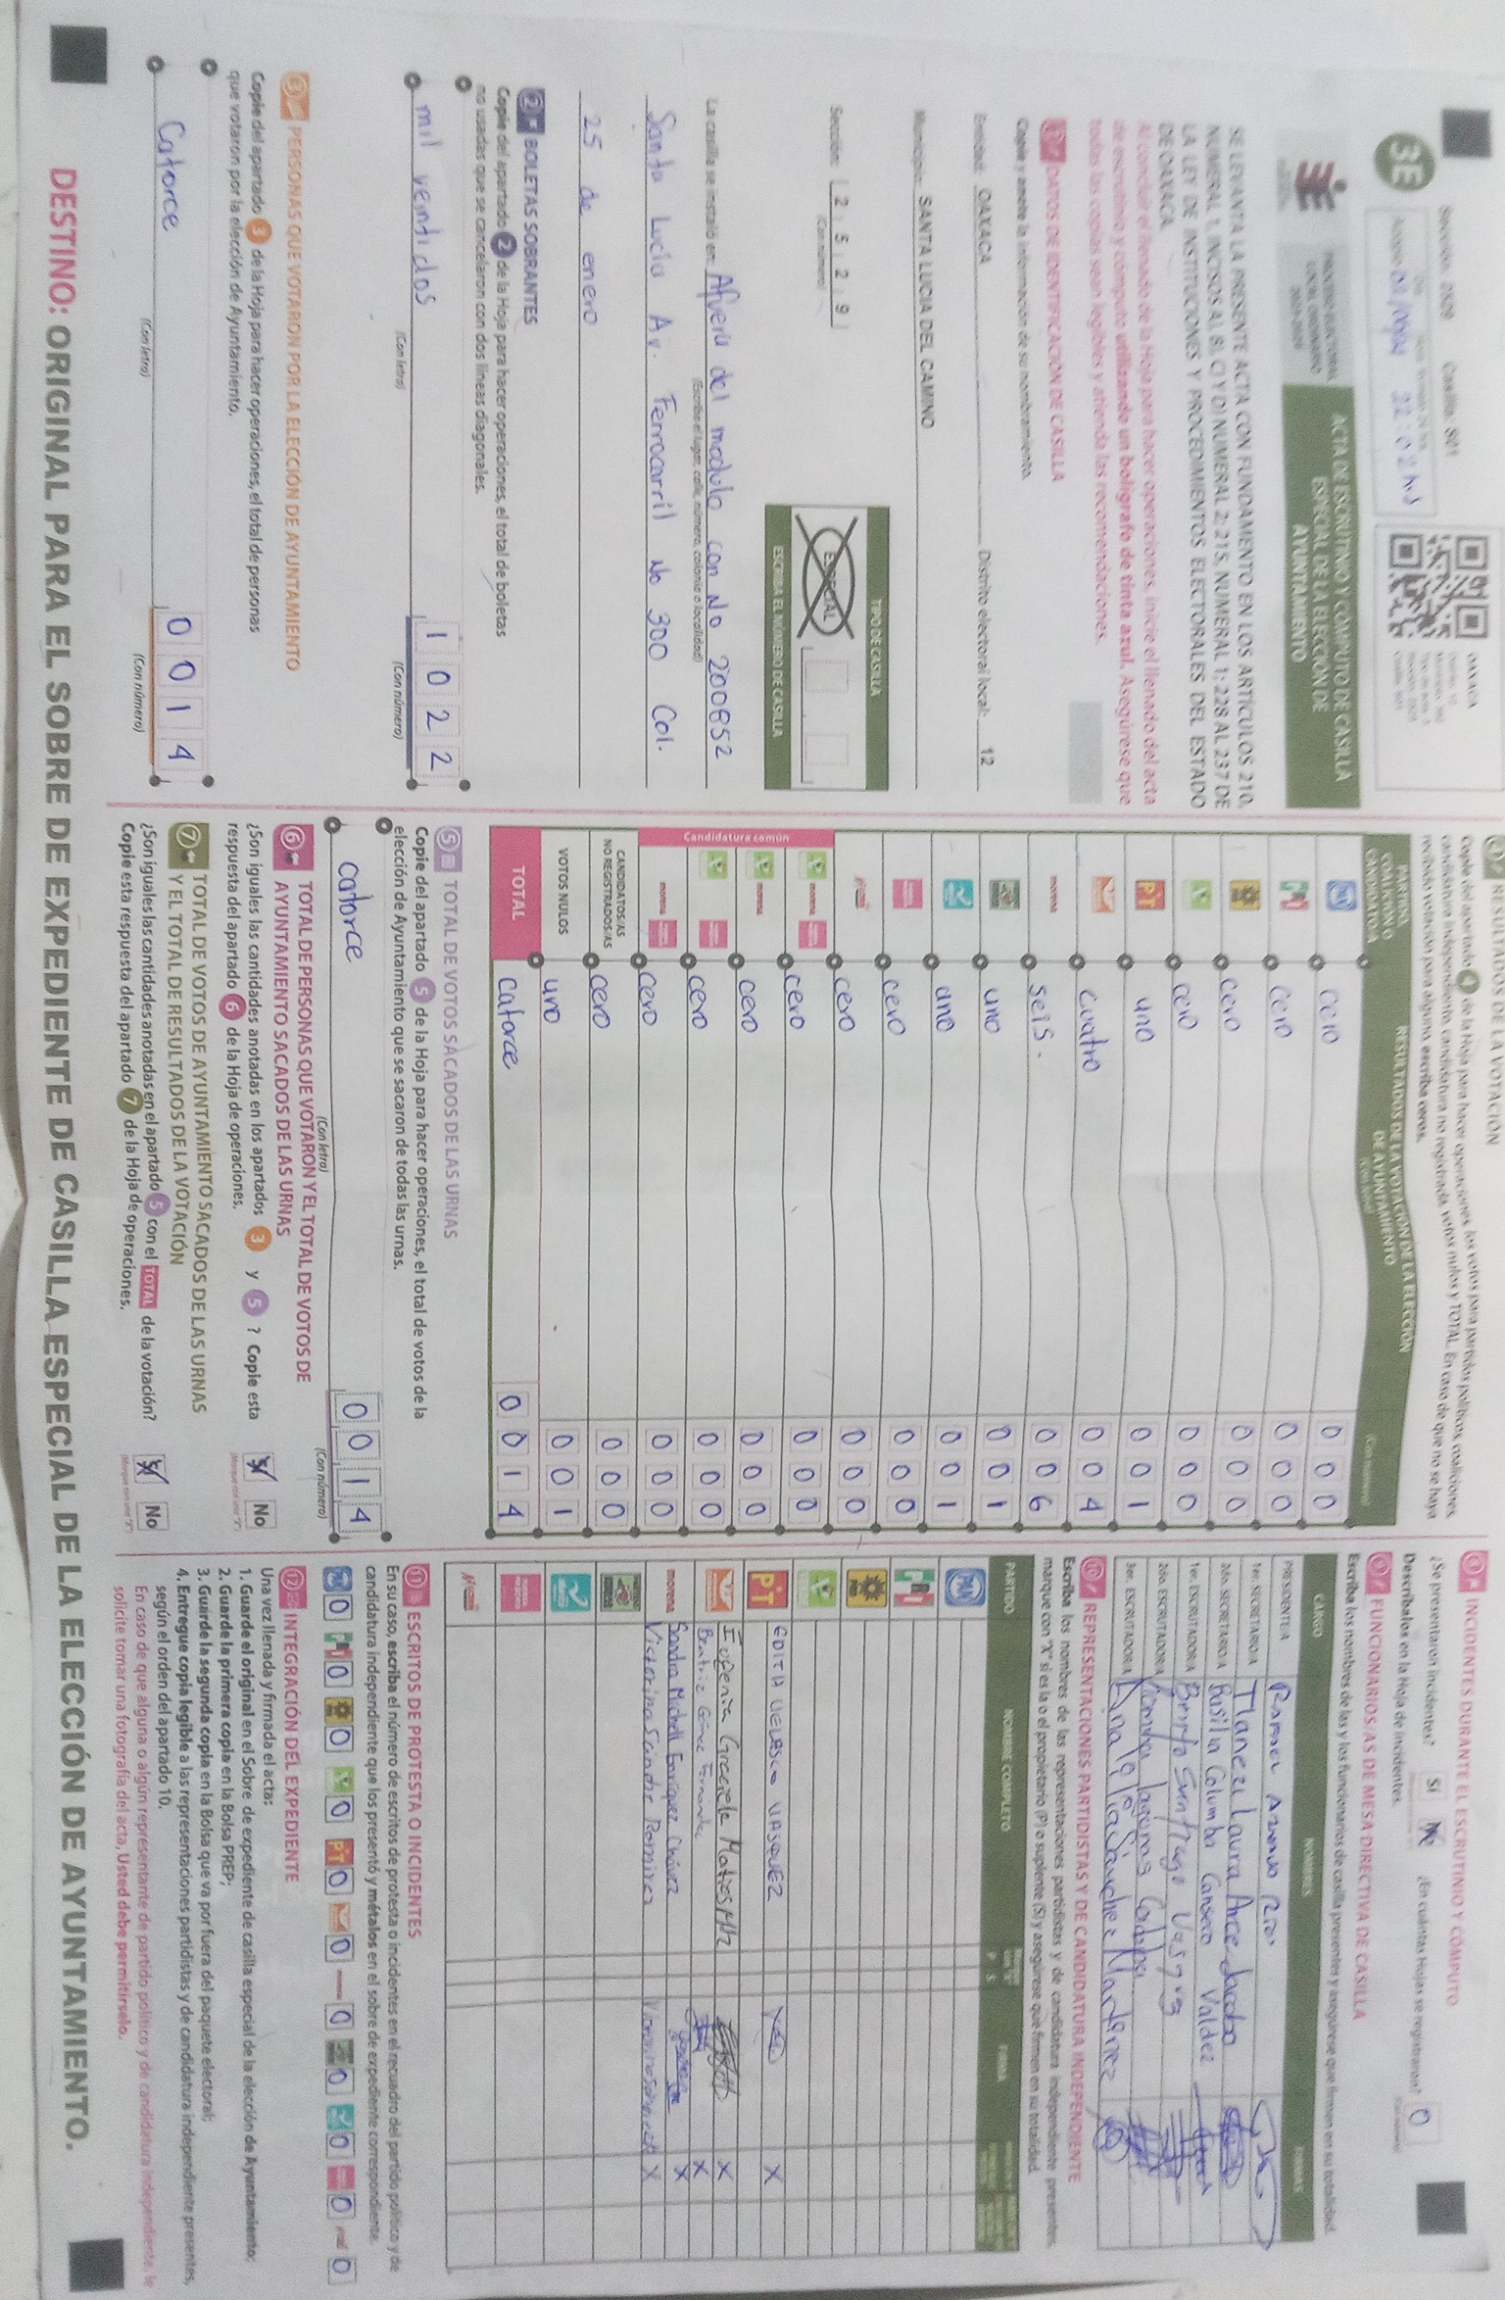 3E
Sección: 2529 Casilla: S01
22:02 hrs
OAXACA
PROCESO ELECTORAL
LOCAL ORDINARIO
2021-2022
ACTA DE ESCRUTINIO Y CÓMPUTO DE CASILLA
ESPECIAL DE LA ELECCIÓN DE
AYUNTAMIENTO
SE LEVANTA LA PRESENTE ACTA CON FUNDAMENTO EN LOS ARTÍCULOS 210,
NUMERAL 1, INCISOS A), B), C) Y D) NUMERAL 2; 215, NUMERAL 1; 228 AL 237 DE
LA LEY DE INSTITUCIONES Y PROCEDIMIENTOS ELECTORALES DEL ESTADO
DE OAXACA.
Al concluir el llenado de la Hoja para hacer operaciones, inicie el llenado del acta
de escrutinio y cómputo utilizando un bolígrafo de tinta azul. Asegúrese que
todas las copias sean legibles y atienda las recomendaciones.
1 DATOS DE IDENTIFICACIÓN DE CASILLA
Copie y anote la información de su nombramiento.
Entidad: OAXACA Distrito electoral local: 12
Municipio: SANTA LUCIA DEL CAMINO
Sección: 2 5 2 9
(Con número)
TIPO DE CASILLA
ESPECIAL
ESCRIBA EL NÚMERO DE CASILLA
La casilla se instaló en: Afuera del modulo con No 200852
(Escriba el lugar, calle, número, colonia o localidad)
Santa Lucia Av. Ferrocarril No 300 Col.
25 de enero
2 BOLETAS SOBRANTES
Copie del apartado 2 de la Hoja para hacer operaciones, el total de boletas
no usadas que se cancelaron con dos líneas diagonales.
mil veintidos 1 0 2 2
(Con letra) (Con número)
3 PERSONAS QUE VOTARON POR LA ELECCIÓN DE AYUNTAMIENTO
Copie del apartado 3 de la Hoja para hacer operaciones, el total de personas
que votaron por la elección de Ayuntamiento.
Catorce 0 0 1 4
(Con letra) (Con número)
4 RESULTADOS DE LA VOTACIÓN
Copie del apartado 4 de la Hoja para hacer operaciones, los votos para partidos políticos, coaliciones,
candidatura independiente, candidatura no registrada, votos nulos y TOTAL. En caso de que no se haya
recibido votación para alguno, escriba ceros.
PARTIDO,
COALICIÓN O
CANDIDATO/A
RESULTADOS DE LA VOTACIÓN DE LA ELECCIÓN
DE AYUNTAMIENTO
(Con letra) (Con número)
PAN cero 0 0 0
PRI cero 0 0 0
cero 0 0 0
cero 0 0 0
PT uno 0 0 1
cuatro 0 0 4
morena seis. 0 0 6
uno 0 0 1
uno 0 0 1
cero 0 0 0
cero 0 0 0
Candidatura común
morena cero 0 0 0
morena cero 0 0 0
cero 0 0 0
morena cero 0 0 0
CANDIDATOS/AS
NO REGISTRADOS/AS cero 0 0 0
VOTOS NULOS uno 0 0 1
TOTAL catorce 0 0 1 4
5 TOTAL DE VOTOS SACADOS DE LAS URNAS
Copie del apartado 5 de la Hoja para hacer operaciones, el total de votos de la
elección de Ayuntamiento que se sacaron de todas las urnas.
catorce 0 0 1 4
(Con letra) (Con número)
6 TOTAL DE PERSONAS QUE VOTARON Y EL TOTAL DE VOTOS DE
AYUNTAMIENTO SACADOS DE LAS URNAS
¿Son iguales las cantidades anotadas en los apartados 3 y 5 ? Copie esta
respuesta del apartado 6 de la Hoja de operaciones.
Sí No
7 TOTAL DE VOTOS DE AYUNTAMIENTO SACADOS DE LAS URNAS
Y EL TOTAL DE RESULTADOS DE LA VOTACIÓN
¿Son iguales las cantidades anotadas en el apartado 5 con el TOTAL de la votación?
Copie esta respuesta del apartado 7 de la Hoja de operaciones.
Sí No
8 INCIDENTES DURANTE EL ESCRUTINIO Y CÓMPUTO
¿Se presentaron incidentes? Sí No ¿En cuántas Hojas se registraron? 0
Descríbalos en la Hoja de incidentes.
9 FUNCIONARIOS/AS DE MESA DIRECTIVA DE CASILLA
Escriba los nombres de las y los funcionarios de casilla presentes y asegúrese que firmen en su totalidad.
CARGO NOMBRES FIRMAS
PRESIDENTE/A
1er. SECRETARIO/A Tlanezi Laura Arce Jacobo
2do. SECRETARIO/A Basilia Columba Canseco Valdez
1er. ESCRUTADOR/A
2do. ESCRUTADOR/A
3er. ESCRUTADOR/A
10 REPRESENTACIONES PARTIDISTAS Y DE CANDIDATURA INDEPENDIENTE
Escriba los nombres de las representaciones partidistas y de candidatura independiente presentes,
marque con "X" si es la o el propietario (P) o suplente (S) y asegúrese que firmen en su totalidad.
PARTIDO NOMBRE COMPLETO P S FIRMA
PAN
PRI
PT EDITH VELASCO VASQUEZ X
Beatriz Gómez Fernandez X
morena Sandra Michell Enríquez Chávez X
X
11 ESCRITOS DE PROTESTA O INCIDENTES
En su caso, escriba el número de escritos de protesta o incidentes en el recuadro del partido político y de
candidatura independiente que los presentó y métalos en el sobre de expediente correspondiente.
0 0 0 0 PT 0 0 0 0 0 0 0
12 INTEGRACIÓN DEL EXPEDIENTE
Una vez llenada y firmada el acta:
1. Guarde el original en el Sobre de expediente de casilla especial de la elección de Ayuntamiento;
2. Guarde la primera copia en la Bolsa PREP;
3. Guarde la segunda copia en la Bolsa que va por fuera del paquete electoral;
4. Entregue copia legible a las representaciones partidistas y de candidatura independiente presentes,
según el orden del apartado 10.
En caso de que alguna o algún representante de partido político y de candidatura independiente, le
solicite tomar una fotografía del acta, Usted debe permitírselo.
DESTINO: ORIGINAL PARA EL SOBRE DE EXPEDIENTE DE CASILLA ESPECIAL DE LA ELECCIÓN DE AYUNTAMIENTO.